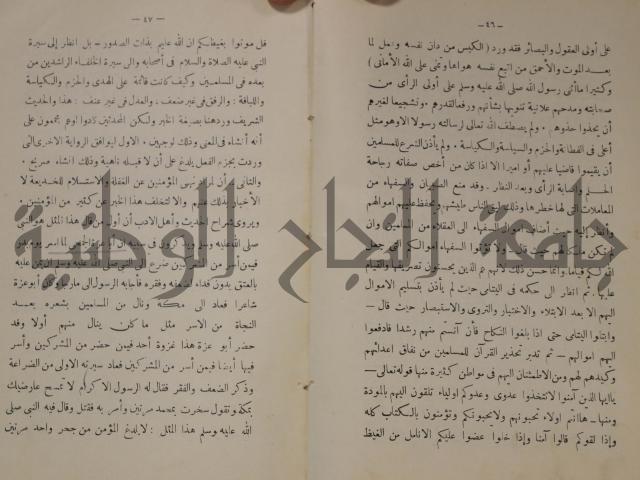 — ٤٦ —
على أولى العقول والبصائر فقد ورد ( الكيس من دان نفسه وعمل لما
بعد الموت والأحمق من اتبع نفسه هواها وتمنى على الله الأمانى )
وكثيرا ما أثنى رسول الله صلى الله عليه وسلم على أولى الرأى من
صحابته ومدحهم علانية تنويها بشأنهم ورفعا لقدرهم وتشجيعا لغيرهم
أن يحذوا حذوهم . ولم يصطف الله تعالى لرسالته رسولا الا وهو مثل
أعلى فى الفطانة والحزم والسياسة والكياسة . ولم يأذن الشرع للمسلمين
أن يقيموا قاضيا عليهم أو اميرا الا اذا كان من أخص صفاته رجاحة
الحلم واصابة الرأى وبعد النظار . وقد منع الصبيان والسفهاء من
المعاملات التى لها خطرها وذلك
وانظر إليه حيث أضاف أموال السفهاء الى العقلاء من المسلمين وان
لم تكن ملكا لهم حيث قال — ولا تؤتوا السفهاء أموالكم التى جعل
الله لكم قياما وانما حسن ذلك لأنهم هم الذين يحسنون تصريفها والقيام
عليها . ثم انظار الى حكمه فى اليتامى حيث لم يأذن بتسليم الاموال
اليهم الا بعد الابتلاء والاختبار والتروى والاستبصار حيث قال —
وابتلوا اليتامى حتى اذا بلغوا النكاح فان آنستم منهم رشدا فادفعوا
اليهم اموالهم — ثم تدبر تحذير القرآن للمسلمين من نفاق اعدائهم
وكيدهم لهم ومن الاطمئنان اليهم فى مواطن كثيرة منها قوله تعالى —
ياايها الذين آمنوا لا تتخذوا عدوى وعدوكم اولياء تلقون اليهم بالمودة
ومنها — هاأنتم أولاء تحبونهم ولا يحبونكم وتؤمنون بالكتاب كله
وإذا لقوكم قالوا آمنا وإذا خلوا عضوا عليكم الانامل من الغيظ
— ٤٧ —
قل موتوا بغيظكم ان الله عليم بذات الصدور — بل انظار إلى سيرة
النبى عليه الصلاة والسلام فى أصحابه والى سيرة الخلفاء الراشدين من
بعده فى المسلمين وكيف كانت قائمة على الهدى والحزم والكياسة
واللباقة : والرفق فى غير ضعف ، والعدل فى غير عنف : هذا والحديث
الشريف وردهنا بصيغة الخبر ولكن المحدثين كادوا اوهم يجمعون على
أنه أنشاء فى المعنى وذلك لوجهين . الاول ليوافق الرواية الاخرى التى
وردت بجزم الفعل يلدغ على أن لا قبله ناهية وذلك انشاء صريح .
والثانى أن المراد نهى المؤمنين عن الغفلة والاستسلام للخديعة لا
الأخبار بذلك عنهم والا لتخلف هذا الخبر عن كثير من المؤمنين .
ويروى شراح الحديث وأهل الادب أن أول من قال هذا المثل هو النبى
صلى الله عليه وسلم ويذكرون فى سببه ان أبو عزة الجمحى لما اسر يوم بدر
فيمن أسر من المشركين ضرع الى النبى صلى الله عليه وسلم أن يمن عليه
بالعتق بدون فداء لضعفه وفقره فاجابه الرسول الى
شاعرا فعاد الى مكة ونال من المسلمين بشعره بعد
النجاة من الاسر مثل ما كان ينال منهم أولا وقد
حضر أبو عزة هذا غزوة أحد فيمن حضر من المشركين وأسر
فيها أيضا فيمن أسر من المشركين فعاد سيرته الاولى من الضراعة
وذكر الضعف والفقر فقال له الرسول الاكرام لا تمسح عارضيك
بمكة وتقول سخرت بمحمد مرتين وأمر به فقتل وقال فيه النبى صلى
الله عليه وسلم هذا المثل : لا يلدغ المؤمن من جحر واحد مرتين
جامعة النجاح الوطنية